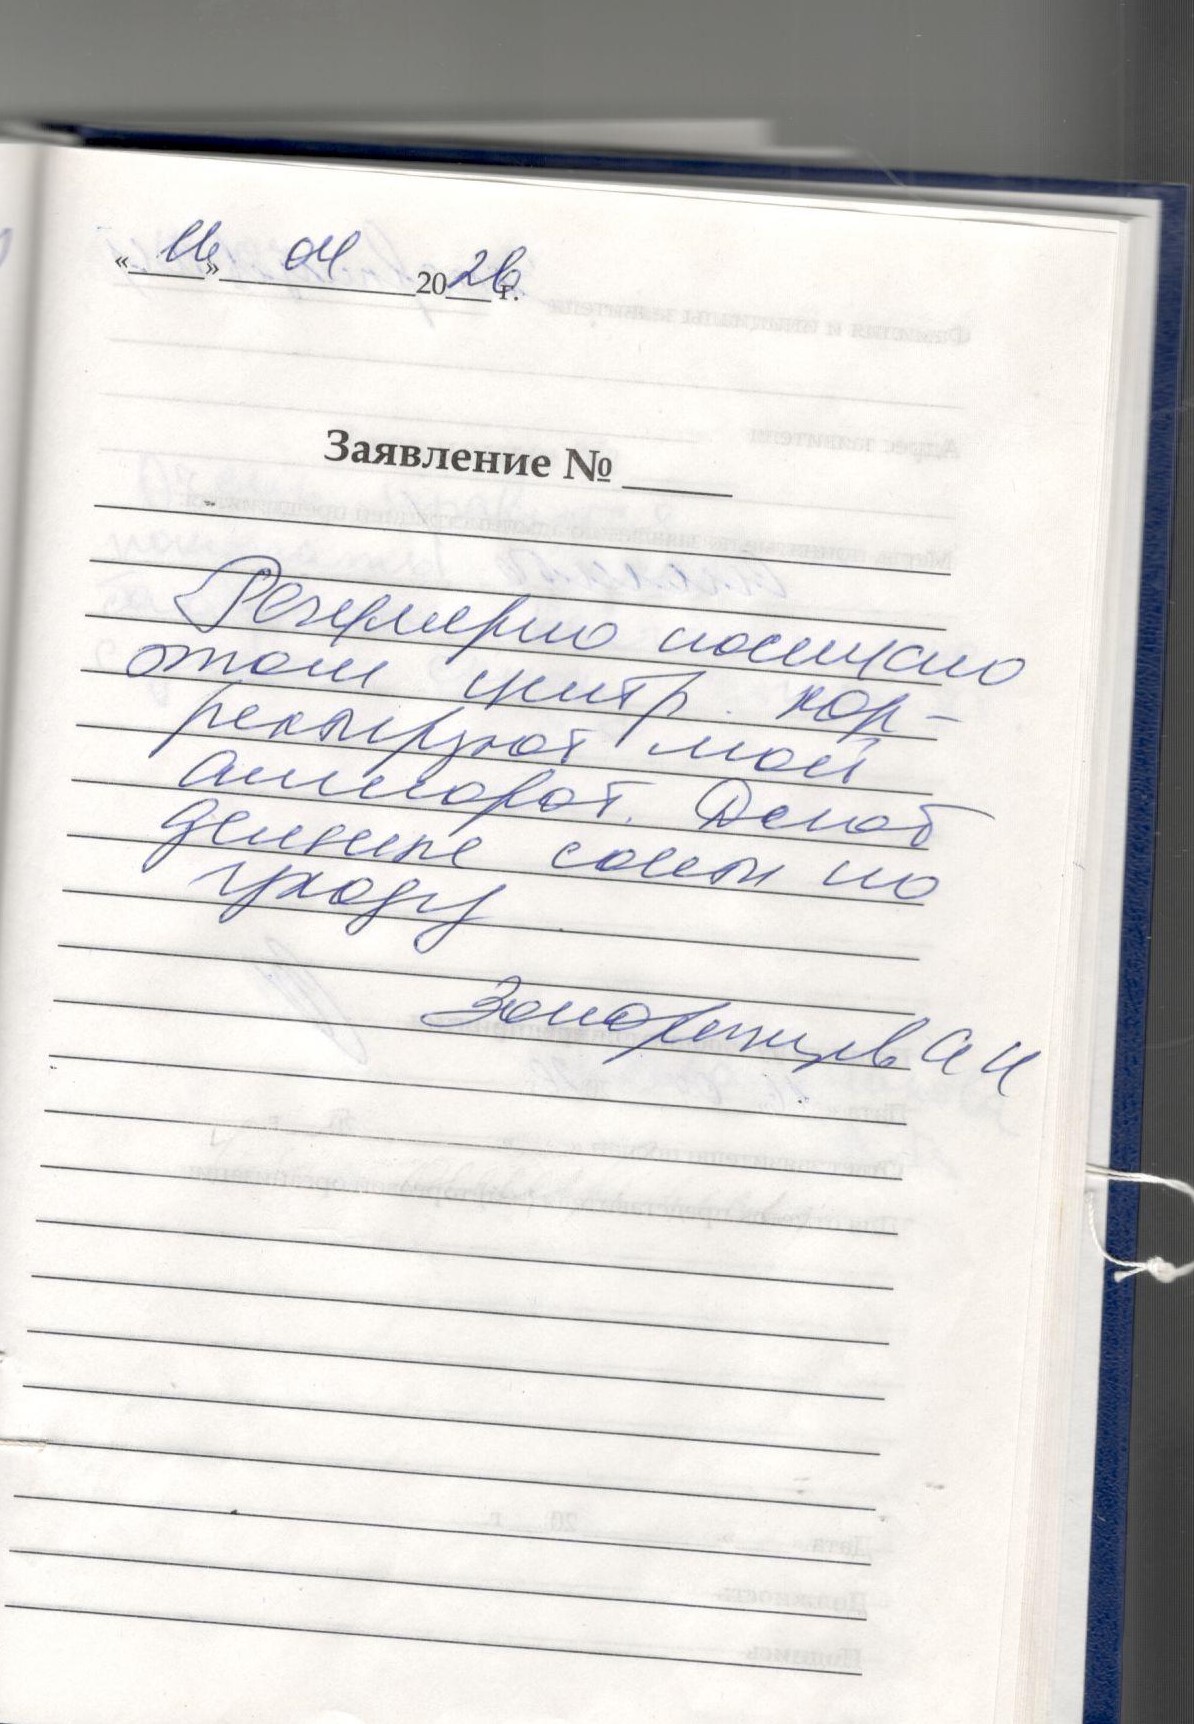 «16» 04 2026 г.
Заявление № ____
Регулярно посещаю
этот центр. Кор-
ректируют мой
аппарат. Дают
ценные советы по
уходу
Запорожцев А И